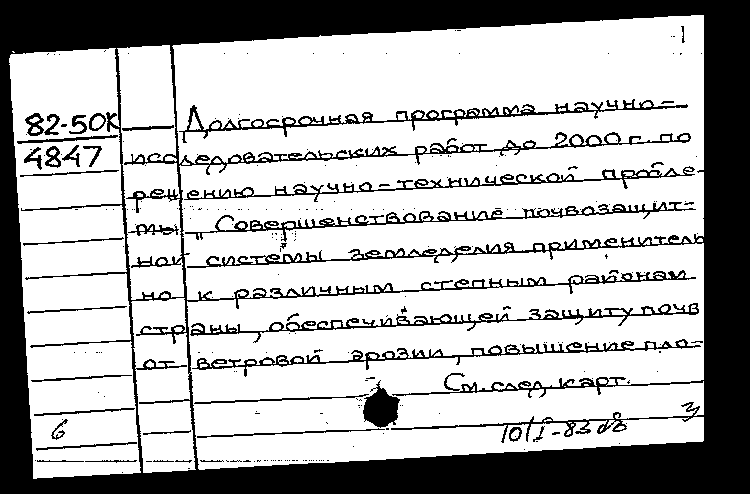 82-50К
4847
Долгосрочная программа научно-
исследовательских работ до 2000 г. по
решению научно-технической пробле-
мы „Совершенствование почвозащит-
ной системы земледелия применитель
но к различным степным районам
страны, обеспечивающей защиту почв
от ветровой эрозии, повышение пло-
См. след. карт.
6
10/I-83
3